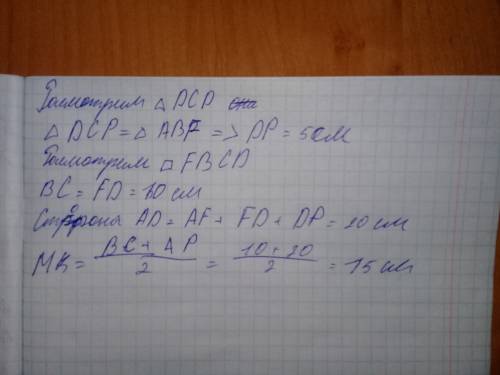 Рассмотрим △ DCP
△ DCP = △ ABF => DP = 5 см
Рассмотрим □ FBCD
BC = FD = 10 см
Сторона AD = AF + FD + DP = 20 см
MK = BC + AP / 2 = 10 + 20 / 2 = 15 см